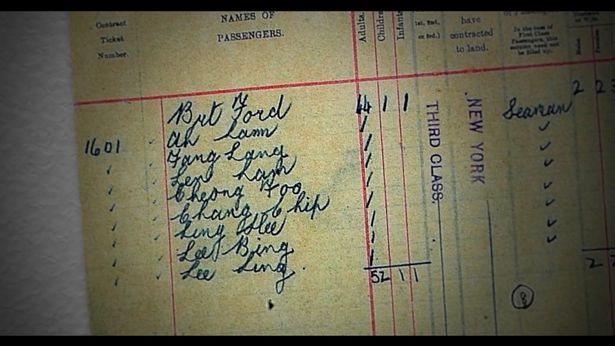 Contract
Ticket
Number.
NAMES OF
PASSENGERS.
Adults.
Children
Infants
have
contracted
to land.
In the case of
First Class
Passengers, this
column need not
be filled up.
Brt Ford 44 1 1 Seaman 2
1601 Ah Lam
Fang Lang
Len Lam
Cheong Foo
Chang Chip
Ling Hee
Lee Bing
Lee Ling.
52 1 1 2
THIRD CLASS.
NEW YORK
8